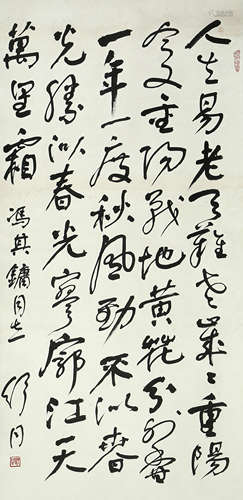 人生易老天難老歲々重陽
今又重陽戰地黃花分外香
一年一度秋風勁不似春
光勝似春光寥廓江天
萬里霜 馮其鏞同志 舒同